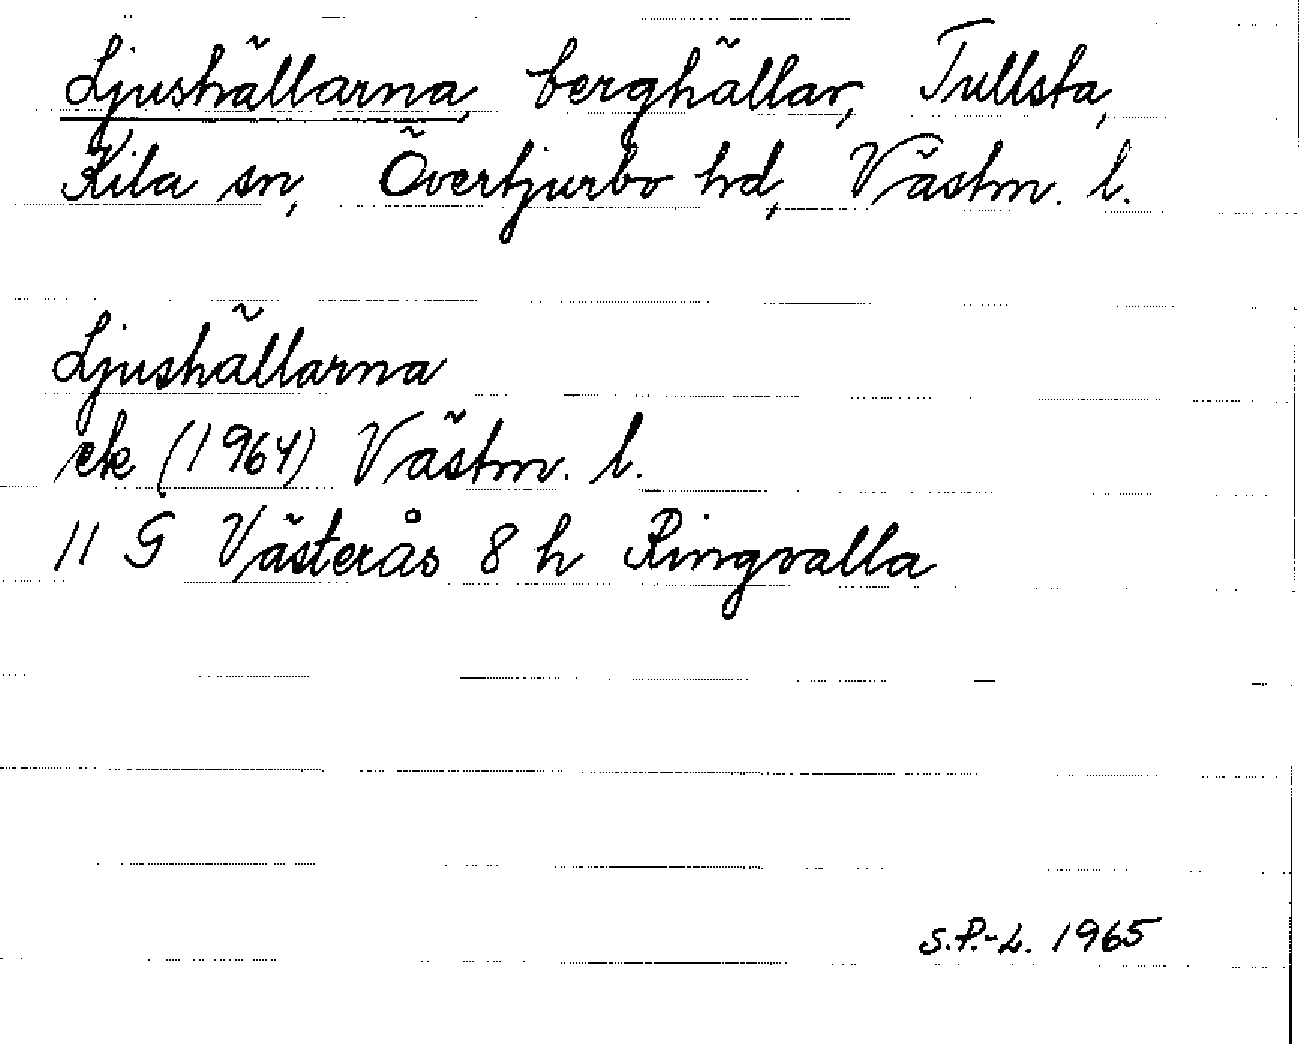 Ljushällarna, berghällar, Tullsta,
Kila sn, Övertjurbo hd, Västm. l.
Ljushällarna
ek (1964) Västm. l.
11 G Västerås 8 h Ringvalla
S.P.-L. 1965